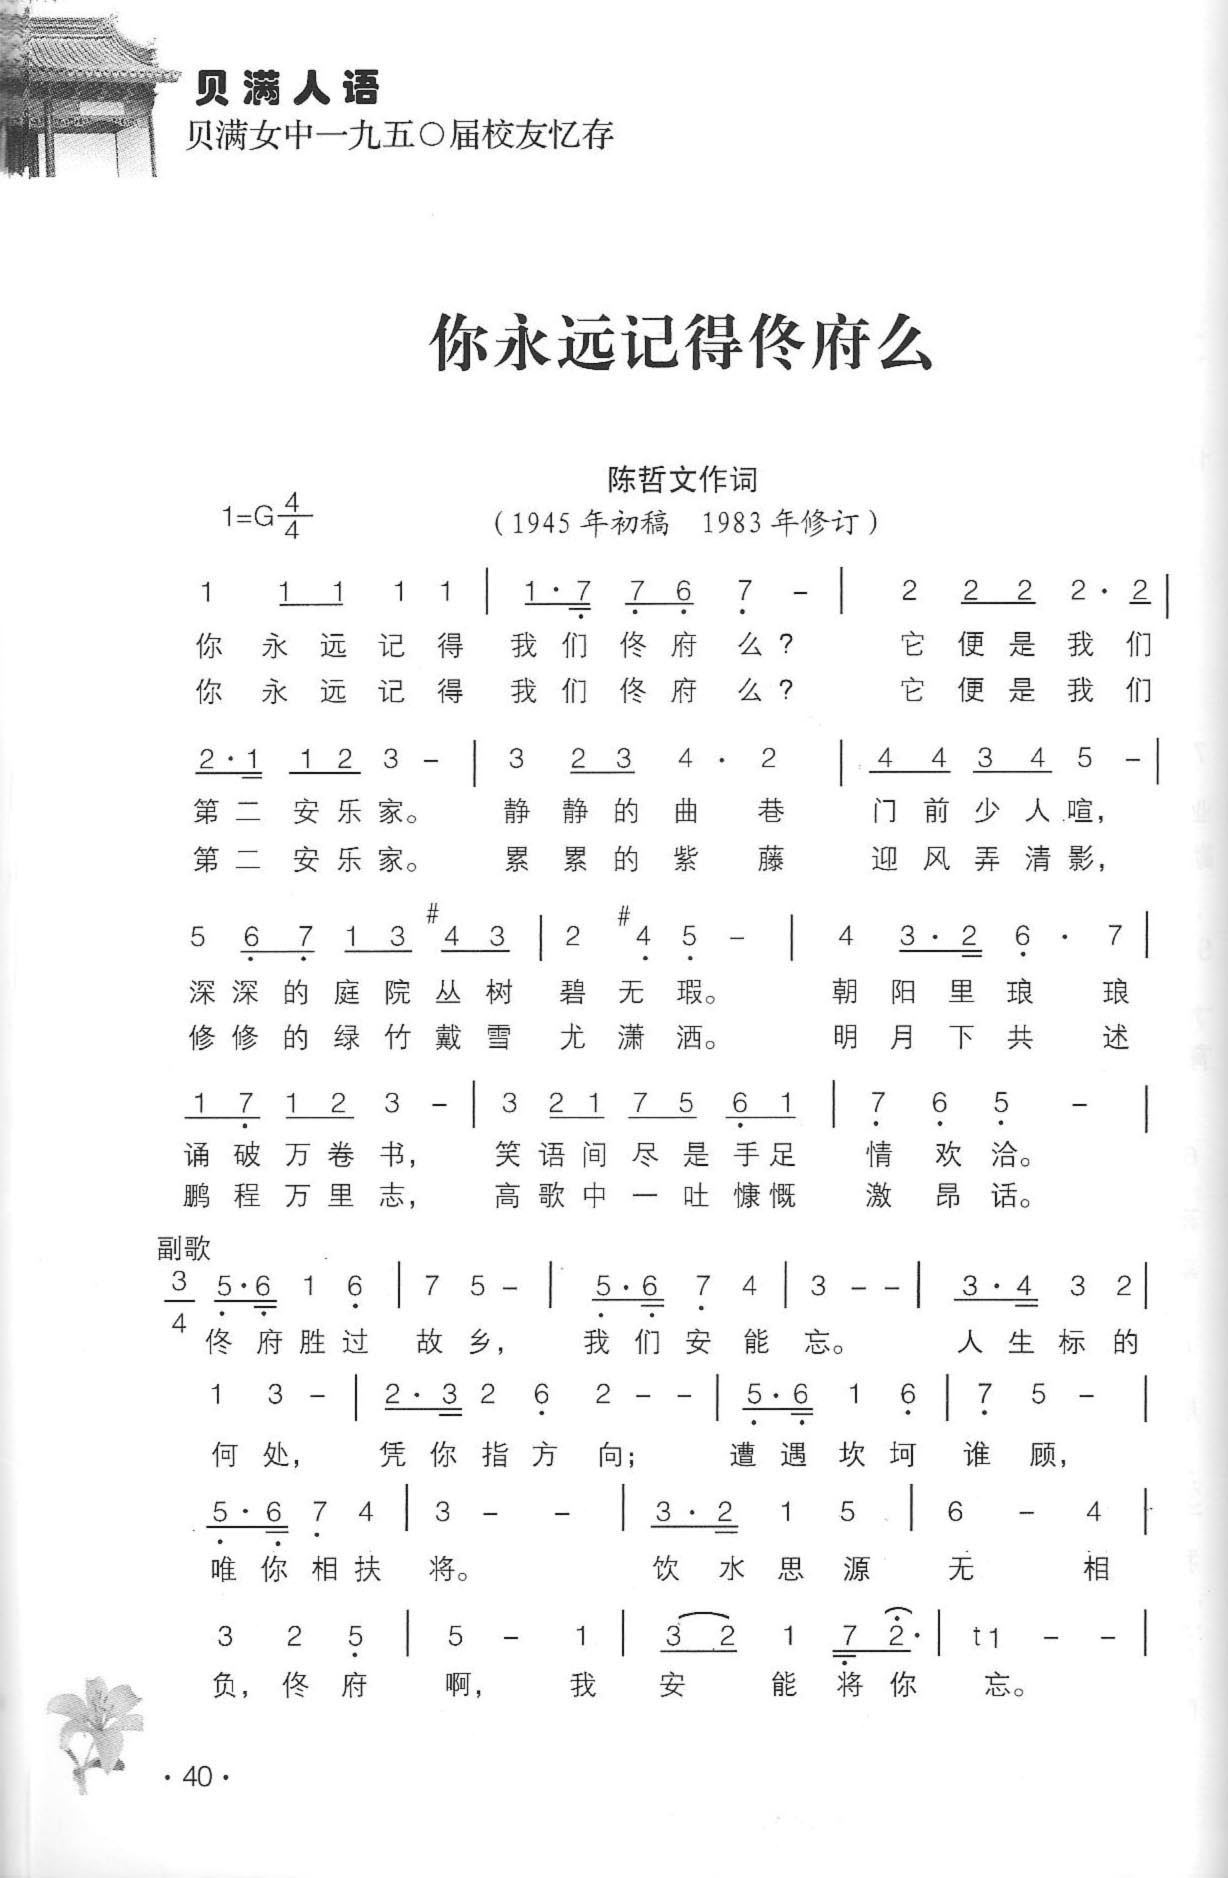 贝满人语
贝满女中一九五〇届校友忆存
你永远记得佟府么
陈哲文作词
1=G 4/4
（1945年初稿 1983年修订）
1 1 1 1 1 | 1·7 7 6 7 - | 2 2 2 2·2 |
你永远记得 我们佟府么? 它便是我们
你永远记得 我们佟府么? 它便是我们
2·1 1 2 3 - | 3 2 3 4·2 | 4 4 3 4 5 - |
第二安乐家。 静静的曲巷 门前少人喧，
第二安乐家。 累累的紫藤 迎风弄清影，
5 6 7 1 3 #4 3 | 2 #4 5 - | 4 3·2 6·7 |
深深的庭院丛树 碧无瑕。 朝阳里琅琅
修修的绿竹戴雪 尤潇洒。 明月下共述
1 7 1 2 3 - | 3 2 1 7 5 6 1 | 7 6 5 - |
诵破万卷书， 笑语间尽是手足 情欢洽。
鹏程万里志， 高歌中一吐慷慨 激昂话。
副歌
3/4 5·6 1 6 | 7 5 - | 5·6 7 4 | 3 - - | 3·4 3 2 |
佟府胜过 故乡， 我们安能忘。 人生标的
1 3 - | 2·3 2 6 2 - - | 5·6 1 6 | 7 5 - |
何处， 凭你指方向； 遭遇坎坷 谁顾，
5·6 7 4 | 3 - - | 3·2 1 5 | 6 - 4 |
唯你相扶 将。 饮水思源 无相
3 2 5 | 5 - 1 | 3 2 1 7 2· | t1 - - |
负，佟府 啊，我 安能将你 忘。
·40·